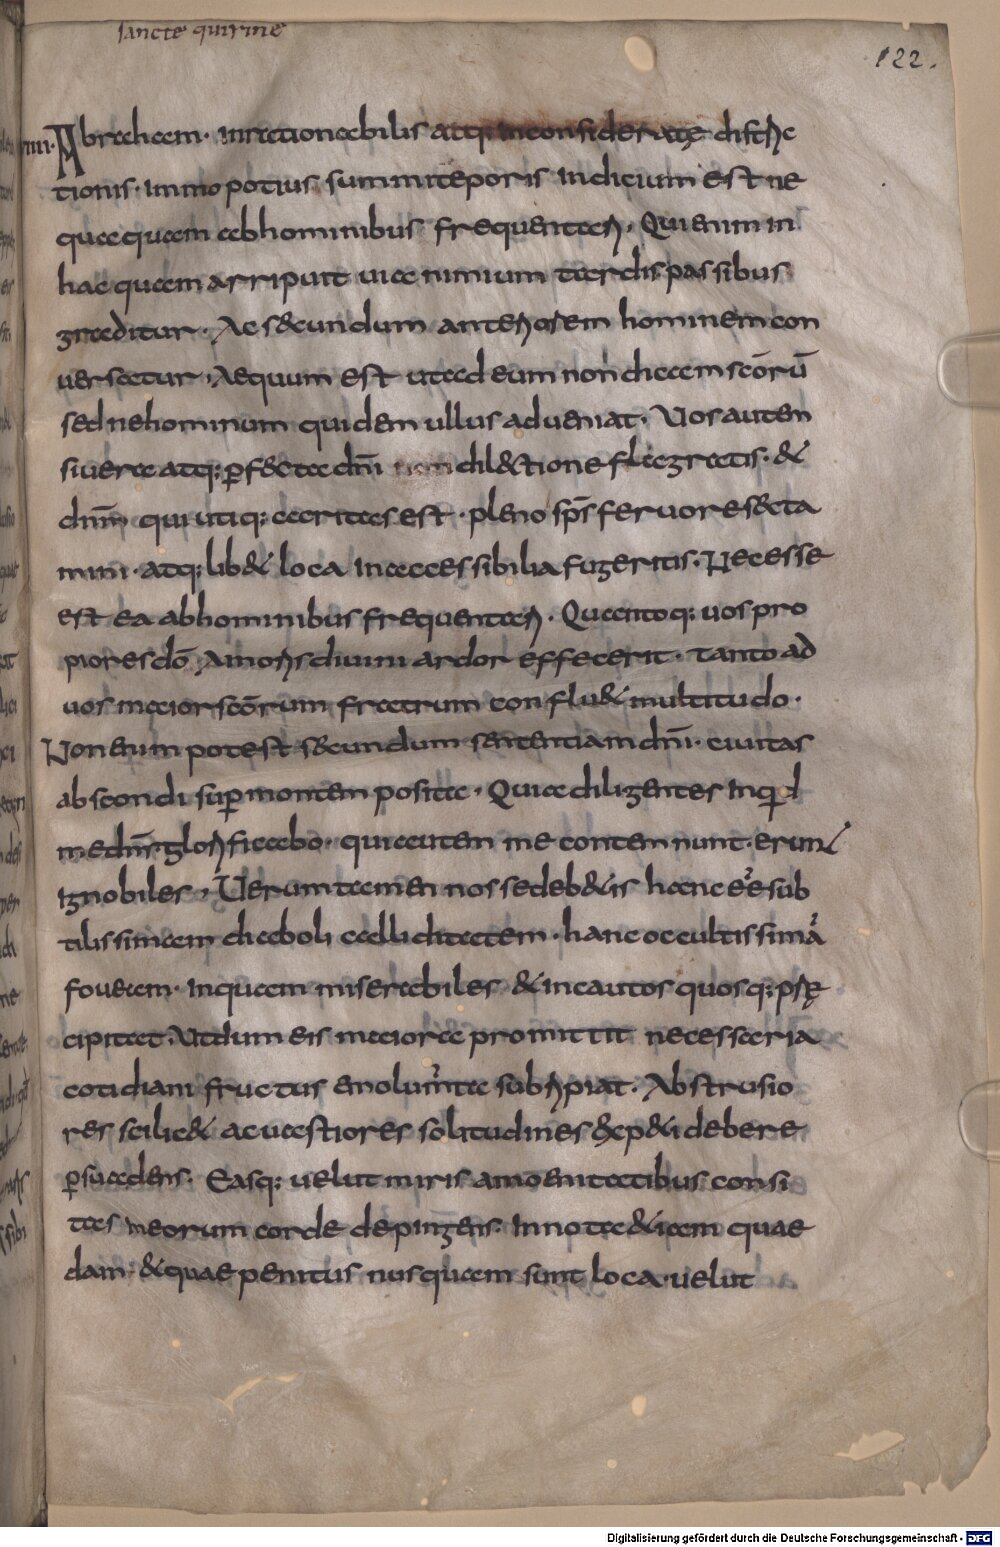 sancte quirine
122.
IIII. Abraham. inrationabilis atq; inconsideratę distric
tionis. immo potius summi teporis indicium est ne
quaquam ab hominibus frequentari. Qui enim in
hac quam arripuit uia nimium tardis passibus
graditur. Ac secundum anteriorem hominem con
uersatur. Aequum est ut ad eum non dicam scōrū
sed ne hominum quidem ullus adueniat. Vos autem
si uera atq; ꝑfecta dn̄i dilectione flagratis. &
dnm̄ qui utiq; caritas est. pleno sp̄s feruore secta
mini. atq; libet loca inaccessibilia fugeritis. Necesse
est ea ab hominibus frequentari. Quantoq; uos pro
piores dō amoris diuini ardor effecerit. tanto ad
uos maior scōrum fratrum confluet multitudo.
Non enim potest secundum sententiam dn̄i. ciuitas
abscondi suꝑ montem posita. Quia diligentes inquid
me dn̄s glorificabo. qui autem me contemnunt. erunt
ignobiles. Verumtamen nosse debetis hanc eē sub
tilissimam diaboli calliditatem. hanc occultissimā
foueam. in quam miserabiles & incautos quosq; prę
cipitat. Ut dum eis maiora promittit necessaria
cotidiani fructus emolumta subripiat. Abstrusio
res scilicet ac uastiores solitudines expeti debere
ꝑsuadens. Easq; uelut miris amoenitatibus consi
tas in eorum corde depingens. Innota etiam quae
dam. & quae penitus nusquam sunt loca. uelut
Digitalisierung gefördert durch die Deutsche Forschungsgemeinschaft - DFG